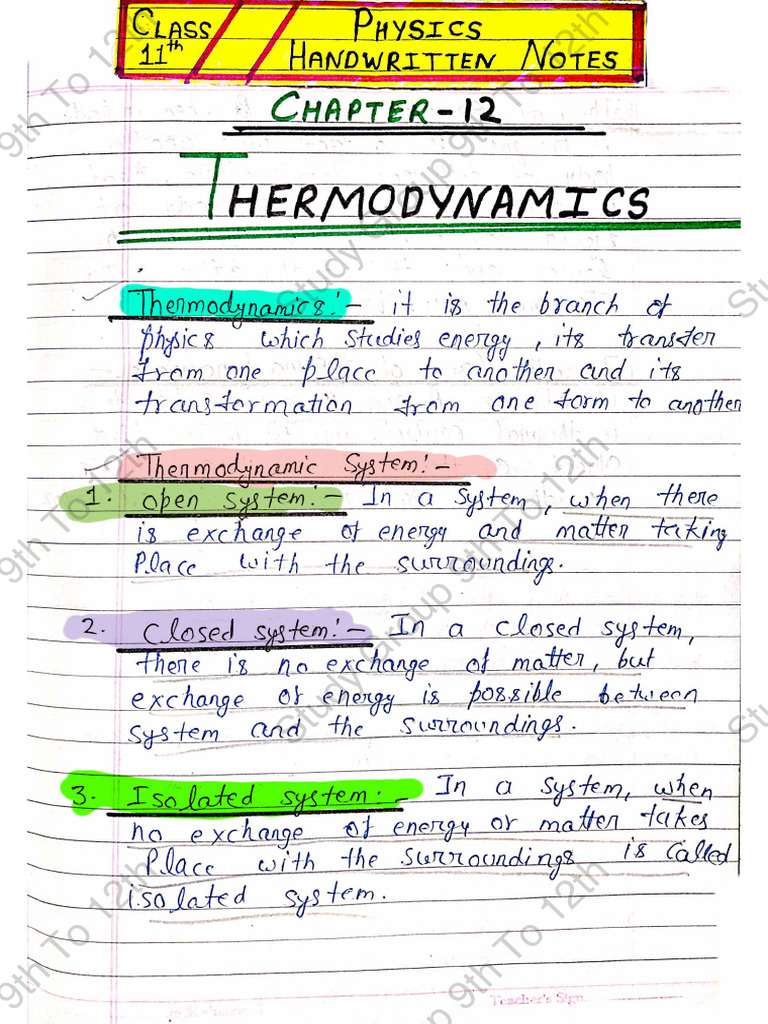 CLASS 11th // PHYSICS HANDWRITTEN NOTES
CHAPTER-12
THERMODYNAMICS
Thermodynamics:- it is the branch of
physics which studies energy, its transfer
from one place to another and its
transformation from one form to another
Thermodynamic System:-
1. open system:- In a system, when there
is exchange of energy and matter taking
Place with the surroundings.
2. Closed system:- In a closed system,
there is no exchange of matter, but
exchange of energy is possible between
system and the surroundings.
3. Isolated system:- In a system, when
no exchange of energy or matter takes
Place with the surroundings is called
isolated system.
Teacher's Sign.
Study Group 9th To 12th
Study Group 9th To 12th
9th To 12th
9th To 12th
9th To 12th
9th To 12th